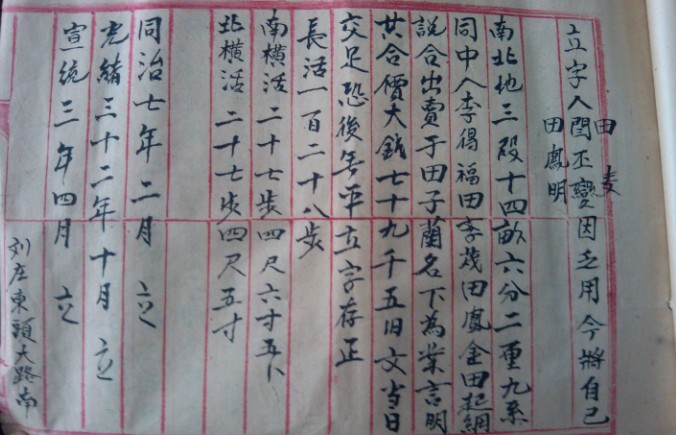 田麦
田鳳明
立字人閆丕變因乏用今將自己
南北地三段十四畝六分二厘九系
同中人李得福田李茂田鳳金田起綱
說合出賣于田子蘭名下為業言明
共合價大錢七十九千五百文當日
交足恐後無平立字存正
長活一百二十八步
南橫活二十七步四尺六寸五卜
北橫活二十七步四尺五寸
同治七年二月 立
光緒三十二年十月 立
宣統三年四月 立
刘庄東頭大路南